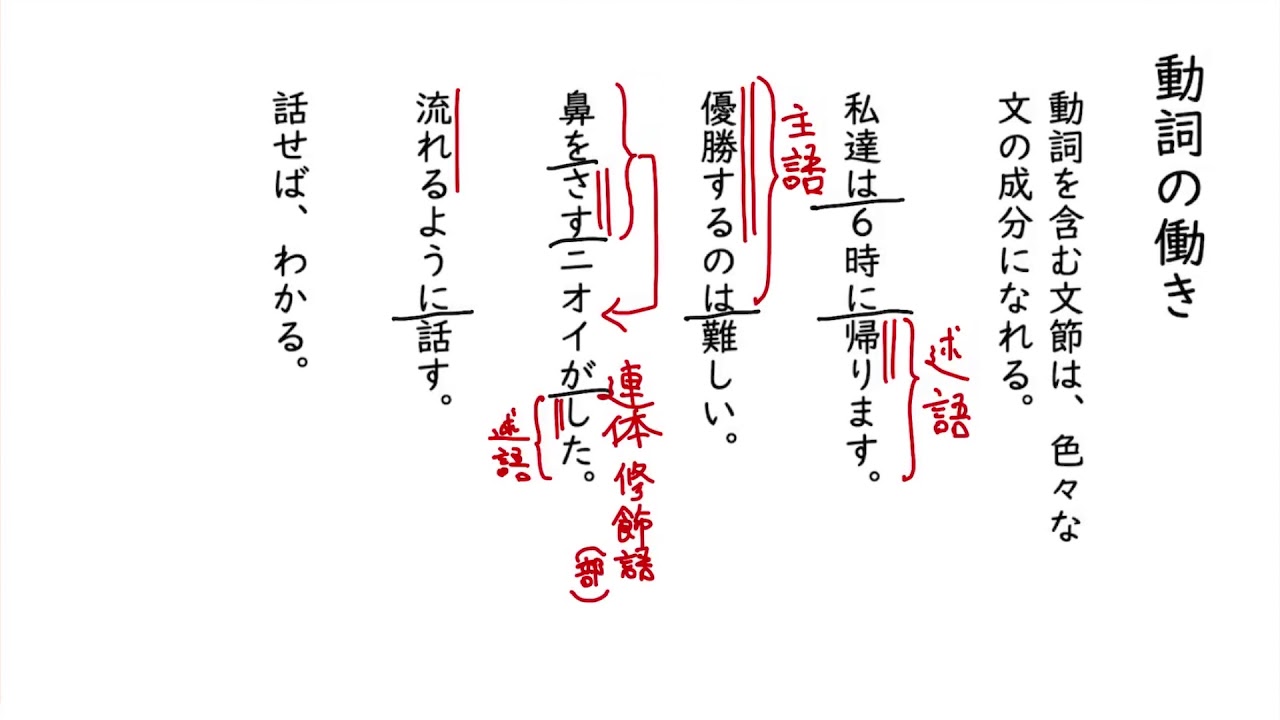 動詞の働き
動詞を含む文節は、色々な
文の成分になれる。
述語
私達は6時に帰ります。
主語
優勝するのは難しい。
連体修飾語
(部)
鼻をさすニオイがした。
述語
流れるように話す。
話せば、わかる。